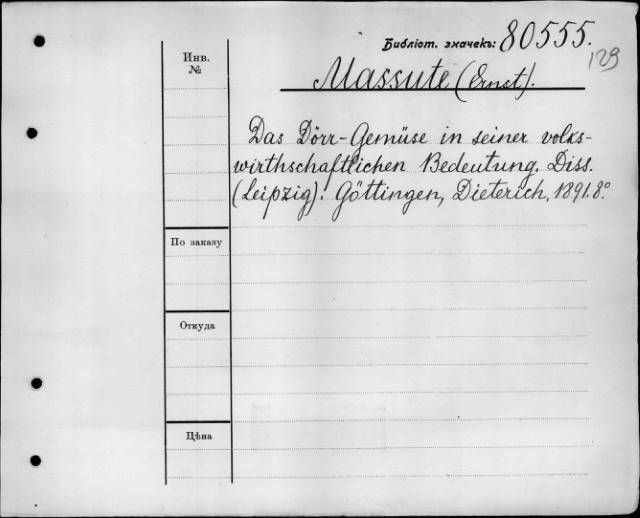 Библіот. значекъ: 80555.
129
Инв.
№
Massute (Ernst).
Das Dörr-Gemüse in seiner volks-
wirthschaftlichen Bedeutung. Diss.
(Leipzig). Göttingen, Dieterich, 1891. 8°.
По заказу
Откуда
Цѣна